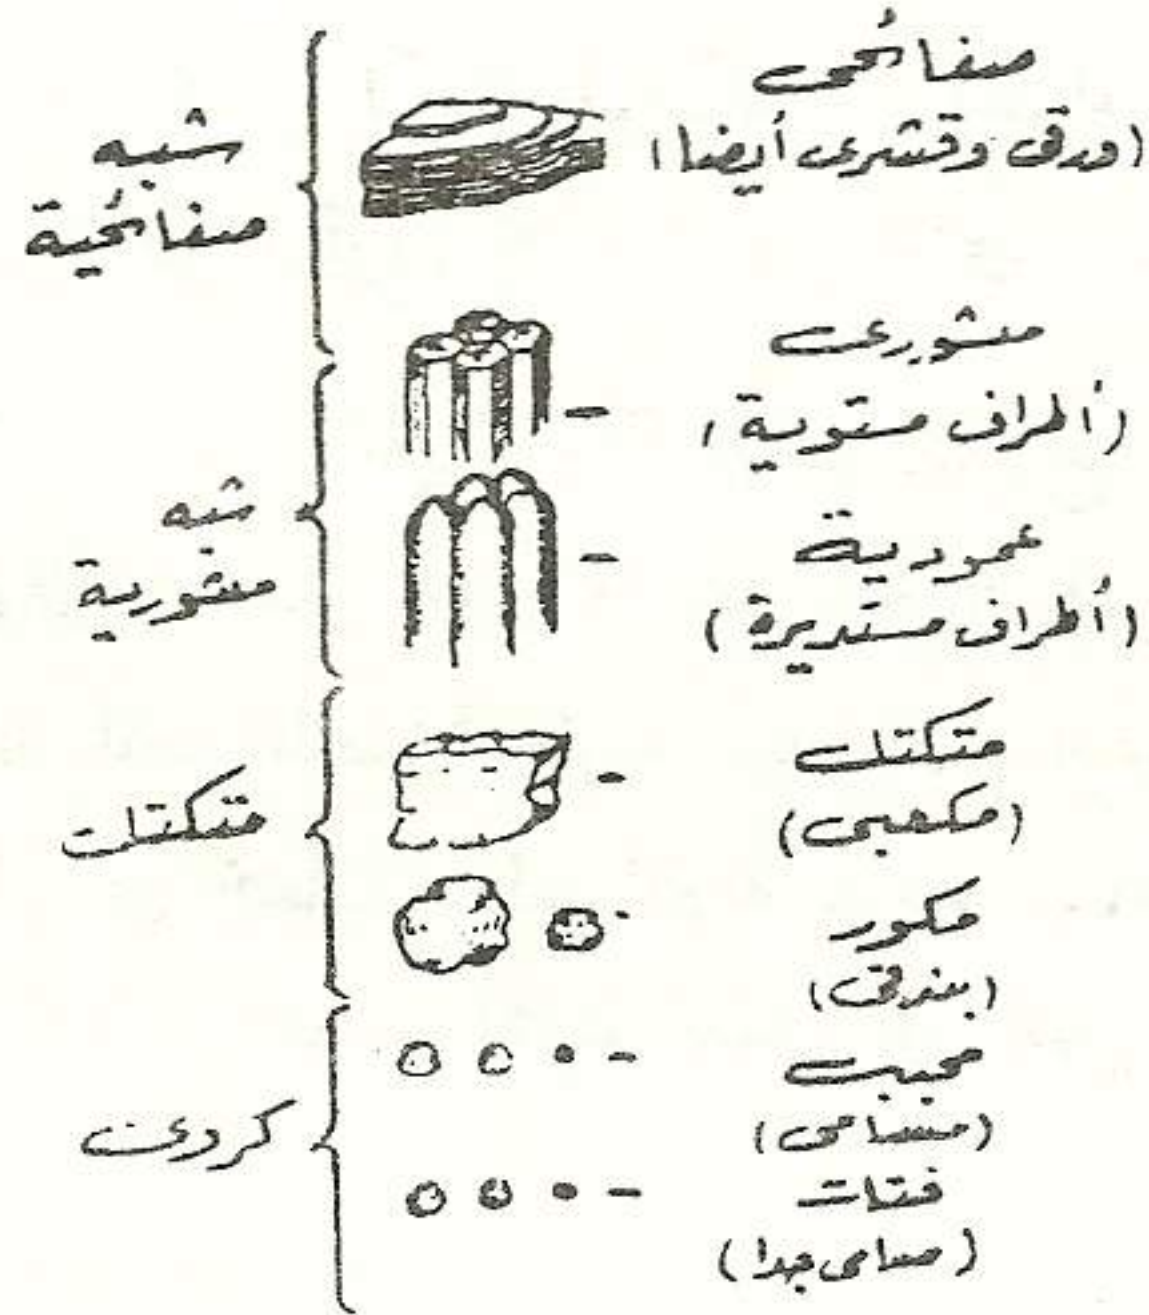 صفائحى
(ورقى وقشرى أيضا)
شبه
صفائحية
منشورى
(أطراف مستوية)
عمودية
(أطراف مستديرة)
شبه
منشورية
متكتل
(مكعبى)
مكور
(بندقى)
متكتلت
محبب
(مسامى)
فتات
(مسامى جدا)
كروى